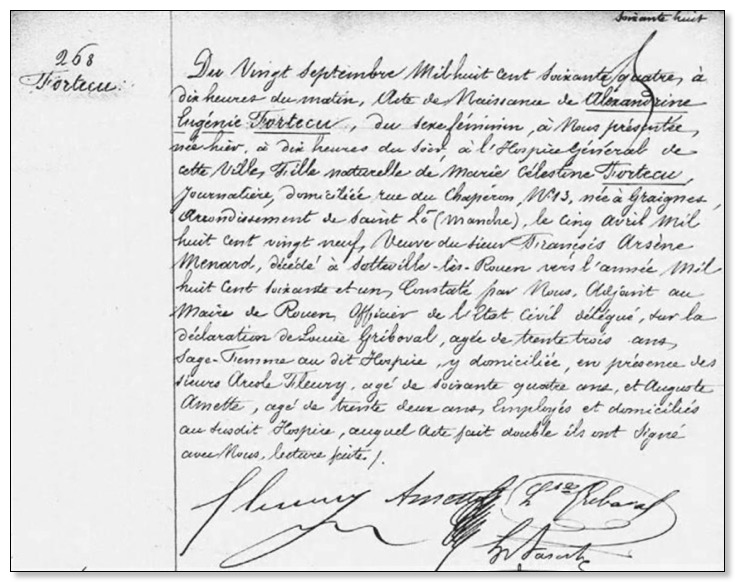 soixante huit
268
Fortecu
Du Vingt Septembre Mil huit Cent Soixante quatre, à
dix heures du matin, Acte de Naissance de Aléxandrine
Eugénie Fortecu, du sexe féminin, à Nous présentée,
née hier, à dix heures du Soir, à l'Hospice Général de
cette Ville, Fille naturelle de Marie Célestine Fortecu,
Journalière, domiciliée rue du Chapéron, N°. 13, née à Graignes,
Arrondissement de Saint Lô (Manche), le cinq Avril Mil
huit Cent vingt neuf, Veuve du sieur François Arsène
Menard, décédé à Sotteville-lès-Rouen vers l'année Mil
huit Cent soixante et un, Constaté par Nous, Adjoint au
Maire de Rouen, Officier de l'Etat Civil délégué, sur la
déclaration de Louise Gréboval, agée de trente trois ans,
Sage-Femme au dit Hospice, y domiciliée, en présence des
sieurs Fleury, agé de soixante quatre ans, et Auguste
Amette, agé de trente deux ans, Employés et domiciliés
au susdit Hospice, auquel Acte fait double ils ont Signé
avec Nous, lecture faite /.
Fleury Amette Lse Gréboval